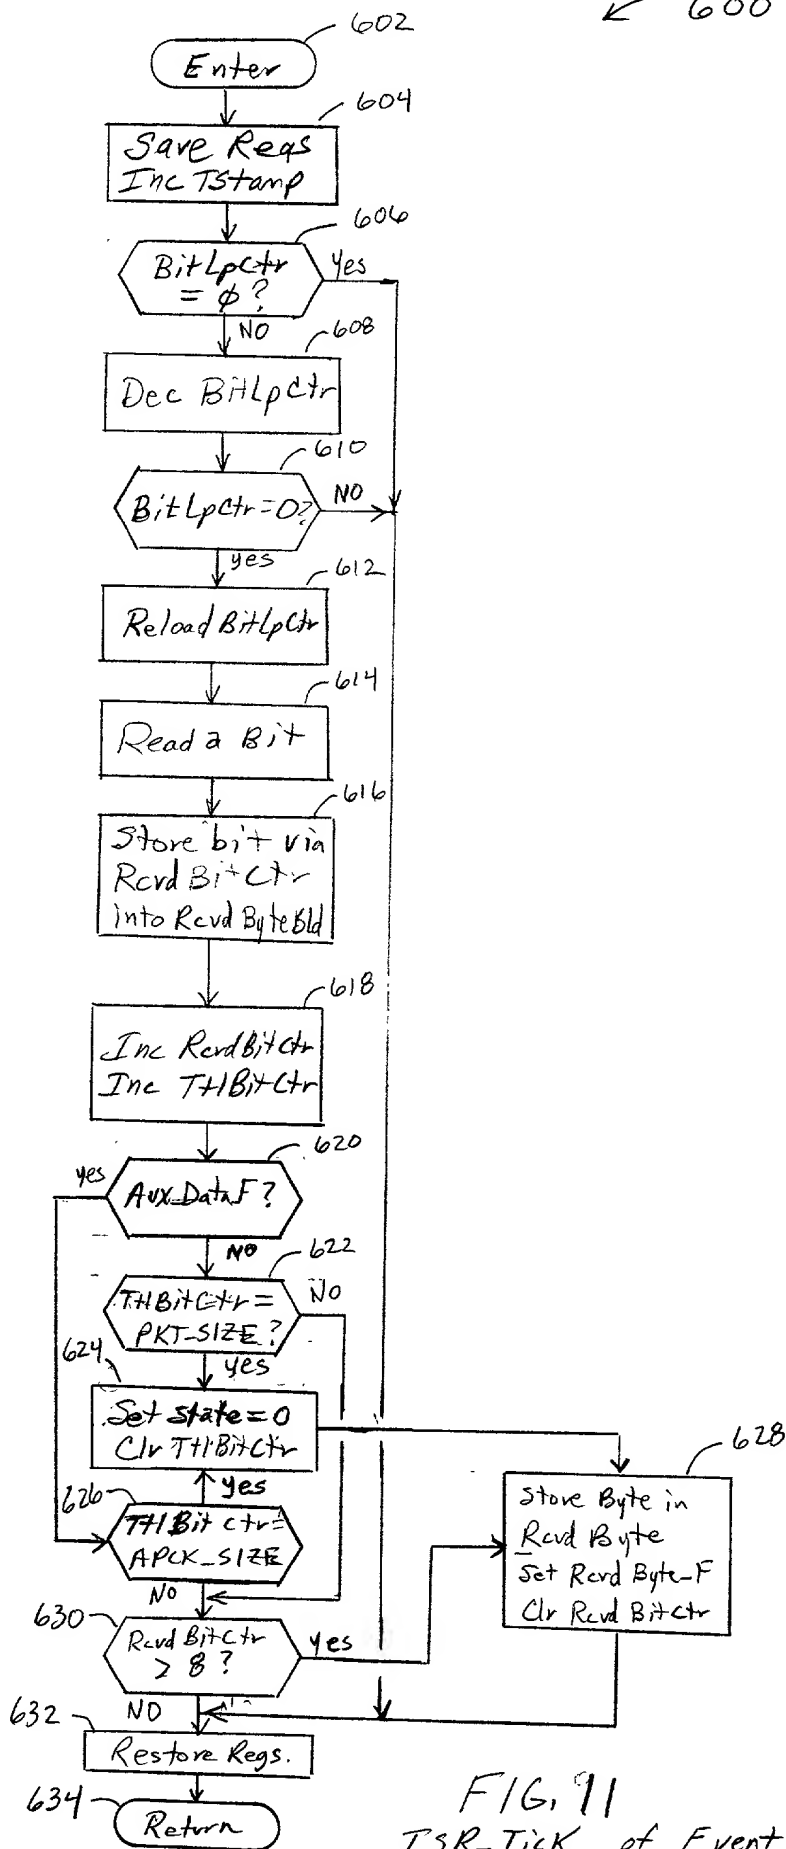 600
602
Enter
604
Save Regs
Inc TStamp
606
BitLpCtr
= ϕ ?
Yes
NO
608
Dec BitLpCtr
610
BitLpCtr=0?
NO
yes
612
Reload BitLpCtr
614
Read a Bit
616
Store bit via
Rcvd BitCtr
into Rcvd ByteBld
618
Inc RcvdBitCtr
Inc TtlBitCtr
620
yes
Aux_DataF?
NO
622
TtlBitCtr=
PKT_SIZE?
NO
yes
624
Set state=0
Clr TtlBitCtr
628
Store Byte in
Rcvd Byte
Set Rcvd Byte_F
Clr Rcvd BitCtr
yes
626
TtlBitCtr=
APCK_SIZE
NO
630
Rcvd BitCtr
> 8 ?
yes
NO
632
Restore Regs.
634
Return
FIG. 91
ISR_Tick of Event